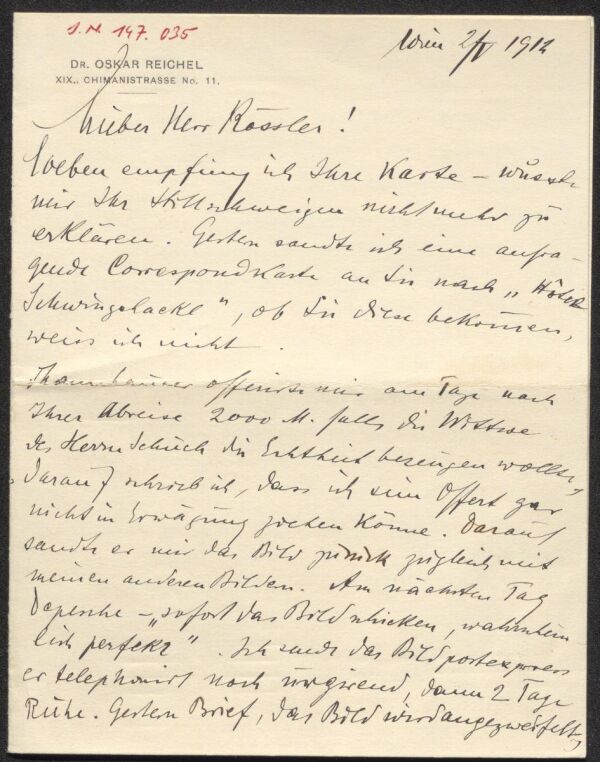 J.N. 147.035
DR. OSKAR REICHEL
XIX., CHIMANISTRASSE No. 11.
Wien 2/V 1912
Lieber Herr Rössler!
Soeben empfing ich Ihre Karte – wusste
mir Ihr Stillschweigen nicht mehr zu
erklären. Gestern sandte ich eine anfra-
gende Correspondkarte an Sie nach „Hôtel
Schwingelacke", ob Sie diese bekommen,
weiss ich nicht.
Thannhauser offerirte mir am Tage nach
Ihrer Abreise 2000 M. falls die Wittwe
des Herrn Schuch die Echtheit bezeugen wollte,
darauf schrieb ich, dass ich sein Offert gar
nicht in Erwägung ziehen könne. Darauf
sandte er mir das Bild zurück zugleich mit
meinen anderen Bildern. Am nächsten Tag
Depesche – „sofort das Bild schicken, wahrschein
lich perfekt". Ich sende das Bild postexpress
er telephonirt noch urgirend, dann 2 Tage
Ruhe. Gestern Brief, das Bild wird angezweifelt,